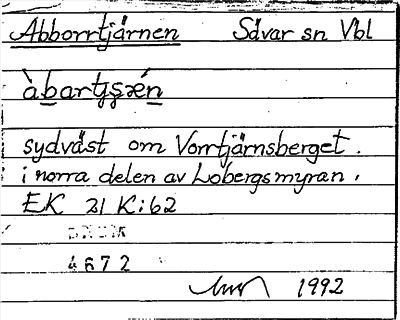 Abborrtjärnen Sävar sn Vbl
sydväst om Vorrtjärnsberget.
i norra delen av Lobergsmyran.
EK 21 K:62
4672
1992